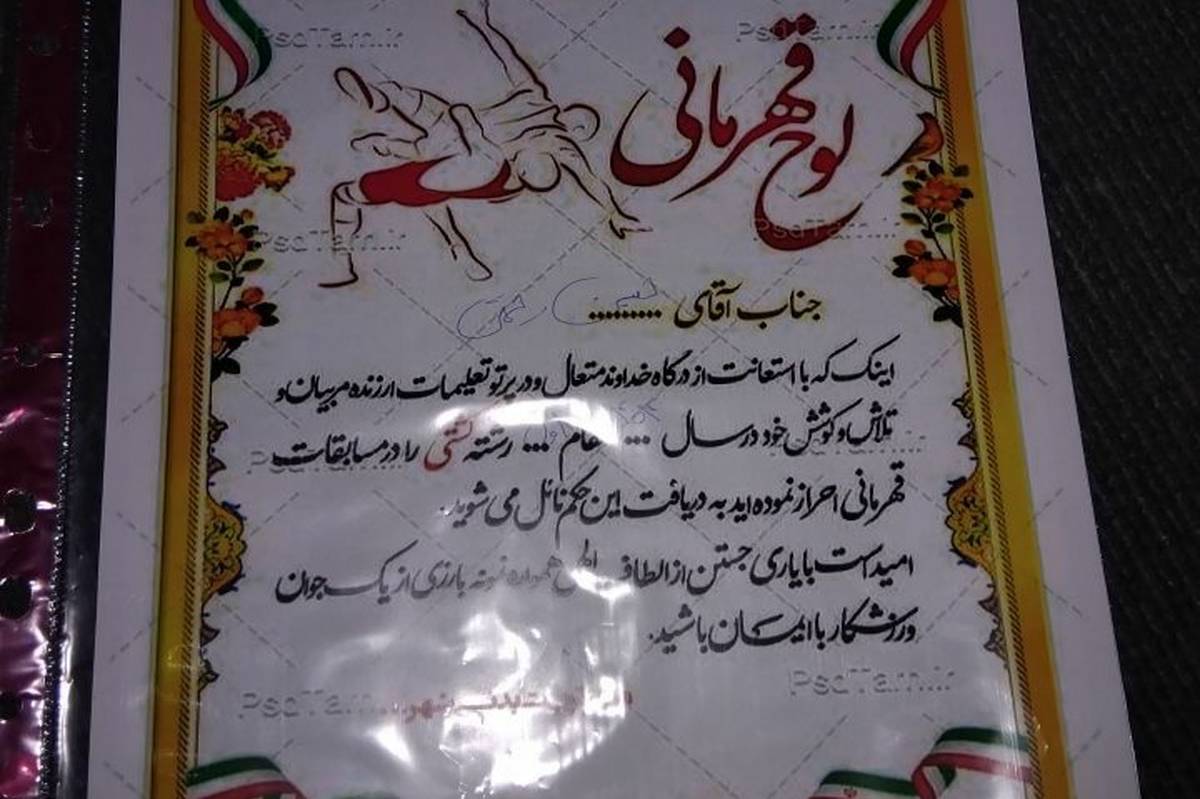 PsdTarh.ir
PsdTarh.ir
لوح قهرمانی
PsdTarh.ir
PsdTarh.ir
جناب آقای .......... حسین رحمتی
اینک که با استعانت از درگاه خداوند متعال و در پرتو تعلیمات ارزنده مربیان و
تلاش و کوشش خود در سال ... مقام ... رشته کشتی را در مسابقات
قهرمانی احراز نموده اید به دریافت این حکم نائل می شوید.
امید است با یاری جستن از الطاف الهی همواره نمونه بارزی از یک جوان
ورزشکار با ایمان باشید.
PsdTarh.ir
PsdTarh.ir